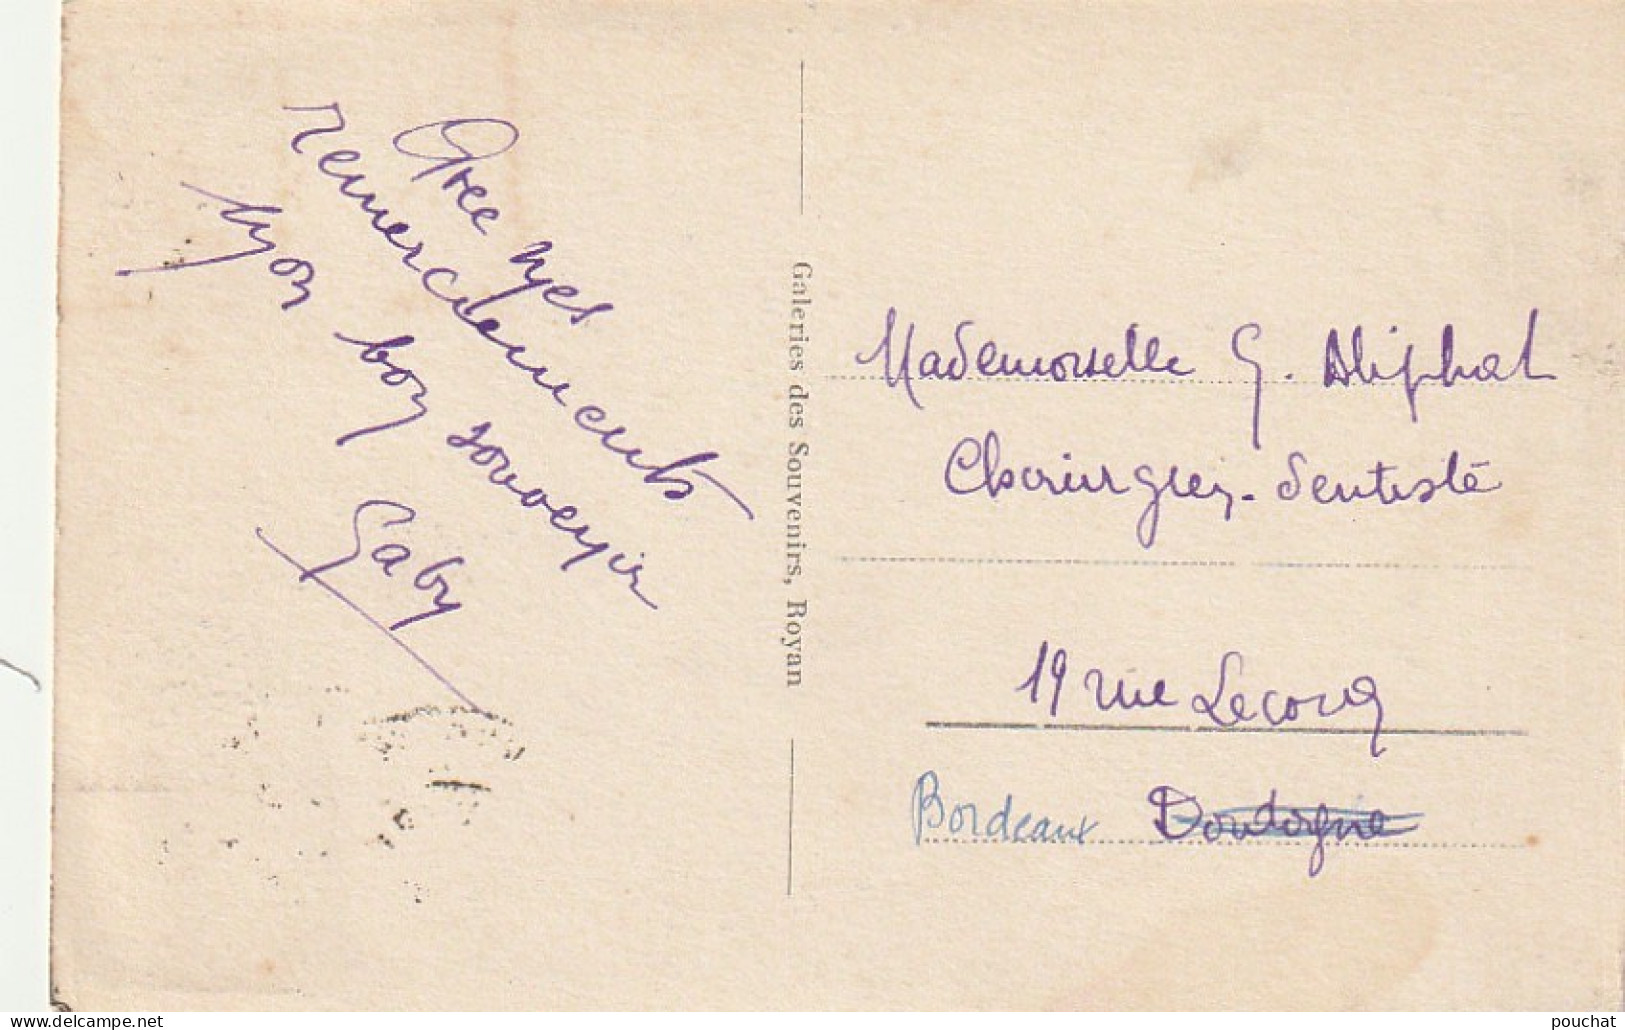 Avec mes
remerciements
Mon bon souvenir
Gaby
Galeries des Souvenirs, Royan
Mademoiselle G. Aliphat
Chirurgien-Dentiste
19 rue Lecocq
Bordeaux Dordogne
www.delcampe.net
pouchat